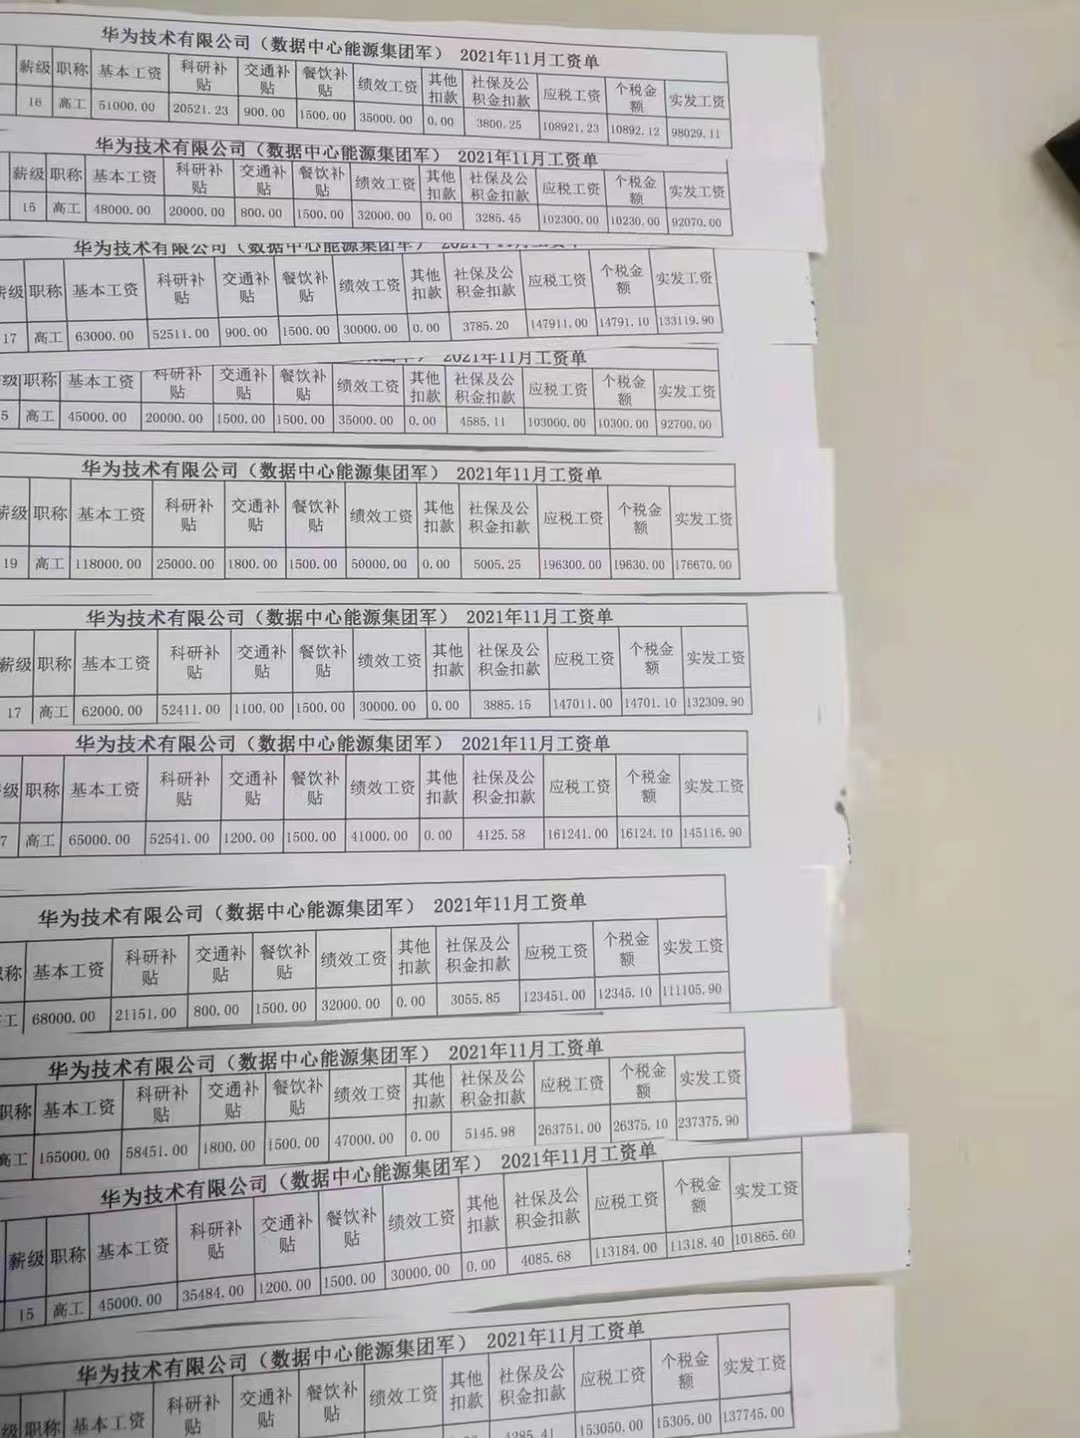 华为技术有限公司（数据中心能源集团军） 2021年11月工资单
薪级 职称 基本工资 科研补贴 交通补贴 餐饮补贴 绩效工资 其他扣款 社保及公积金扣款 应税工资 个税金额 实发工资
16 高工 51000.00 20521.23 900.00 1500.00 35000.00 0.00 3800.25 108921.23 10892.12 98029.11
华为技术有限公司（数据中心能源集团军） 2021年11月工资单
薪级 职称 基本工资 科研补贴 交通补贴 餐饮补贴 绩效工资 其他扣款 社保及公积金扣款 应税工资 个税金额 实发工资
15 高工 48000.00 20000.00 800.00 1500.00 32000.00 0.00 3285.45 102300.00 10230.00 92070.00
华为技术有限公司（数据中心能源集团军） 2021年11月工资单
薪级 职称 基本工资 科研补贴 交通补贴 餐饮补贴 绩效工资 其他扣款 社保及公积金扣款 应税工资 个税金额 实发工资
17 高工 63000.00 52511.00 900.00 1500.00 30000.00 0.00 3785.20 147911.00 14791.10 133119.90
2021年11月工资单
级 职称 基本工资 科研补贴 交通补贴 餐饮补贴 绩效工资 其他扣款 社保及公积金扣款 应税工资 个税金额 实发工资
5 高工 45000.00 20000.00 1500.00 1500.00 35000.00 0.00 4585.11 103000.00 10300.00 92700.00
华为技术有限公司（数据中心能源集团军） 2021年11月工资单
薪级 职称 基本工资 科研补贴 交通补贴 餐饮补贴 绩效工资 其他扣款 社保及公积金扣款 应税工资 个税金额 实发工资
19 高工 118000.00 25000.00 1800.00 1500.00 50000.00 0.00 5005.25 196300.00 19630.00 176670.00
华为技术有限公司（数据中心能源集团军） 2021年11月工资单
薪级 职称 基本工资 科研补贴 交通补贴 餐饮补贴 绩效工资 其他扣款 社保及公积金扣款 应税工资 个税金额 实发工资
17 高工 62000.00 52411.00 1100.00 1500.00 30000.00 0.00 3885.15 147011.00 14701.10 132309.90
华为技术有限公司（数据中心能源集团军） 2021年11月工资单
级 职称 基本工资 科研补贴 交通补贴 餐饮补贴 绩效工资 其他扣款 社保及公积金扣款 应税工资 个税金额 实发工资
7 高工 65000.00 52541.00 1200.00 1500.00 41000.00 0.00 4125.58 161241.00 16124.10 145116.90
华为技术有限公司（数据中心能源集团军） 2021年11月工资单
职称 基本工资 科研补贴 交通补贴 餐饮补贴 绩效工资 其他扣款 社保及公积金扣款 应税工资 个税金额 实发工资
工 68000.00 21151.00 800.00 1500.00 32000.00 0.00 3055.85 123451.00 12345.10 111105.90
华为技术有限公司（数据中心能源集团军） 2021年11月工资单
职称 基本工资 科研补贴 交通补贴 餐饮补贴 绩效工资 其他扣款 社保及公积金扣款 应税工资 个税金额 实发工资
高工 155000.00 58451.00 1800.00 1500.00 47000.00 0.00 5145.98 263751.00 26375.10 237375.90
华为技术有限公司（数据中心能源集团军） 2021年11月工资单
薪级 职称 基本工资 科研补贴 交通补贴 餐饮补贴 绩效工资 其他扣款 社保及公积金扣款 应税工资 个税金额 实发工资
15 高工 45000.00 35484.00 1200.00 1500.00 30000.00 0.00 4085.68 113184.00 11318.40 101865.60
华为技术有限公司（数据中心能源集团军） 2021年11月工资单
级 职称 基本工资 科研补贴 交通补贴 餐饮补贴 绩效工资 其他扣款 社保及公积金扣款 应税工资 个税金额 实发工资
4285.41 153050.00 15305.00 137745.00